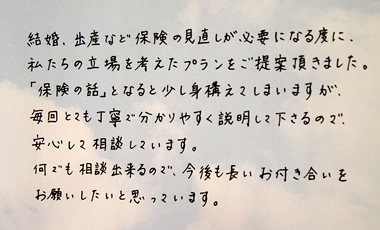 結婚、出産など保険の見直しが必要になる度に、
私たちの立場を考えたプランをご提案頂きました。
「保険の話」となると少し身構えてしまいますが、
毎回とても丁寧で分かりやすく説明して下さるので、
安心して相談しています。
何でも相談出来るので、今後も長いお付き合いを
お願いしたいと思っています。